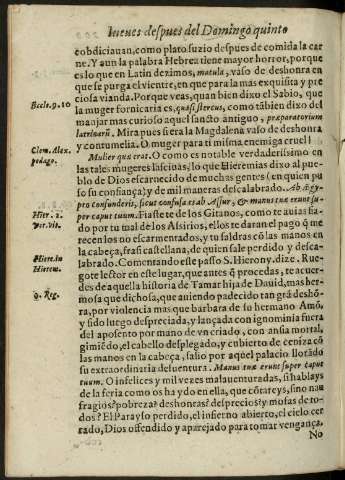 Iueues despues del Domingo quinto
cobdiciauan, como plato suzio despues de comida la car
ne. Y aun la palabra Hebrea tiene mayor horror, porque
es lo que en Latin dezimos, matula, vaso de deshonra en
que se purga el vientre, en que para la mas exquisita y pre
ciosa vianda. Porque veas, quan bien dixo el Sabio, que
Eccle. 9. 10
la muger fornicaria es, quasi stercus, como tãbien dixo del
manjar mas curioso aquel sancto antiguo, præparatorium
latrinarũ. Mira pues si era la Magdalena vaso de deshonra
Clem. Alex.
pedago.
y contumelia. O muger para ti misma enemiga cruel!
Mulier quæ erat. O como es notable verdaderissimo en
las tales mugeres lasciuas, lo que Hieremias dixo al pueblo
de Dios escarnecido de muchas gentes (en quien pu
so su confiança) y de mil maneras descalabrado. Ab Ægy-
pto confunderis, sicut confusa es ab Assur, & manus tuæ erunt su-
Hier. 2.
per caput tuum. Fiaste de los Gitanos, como te auias fia-
Ver. vlt.
do por tu mal de los Assirios, ellos te daran el pago q̃ me
recen los no escarmentados, y tu saldras cõ las manos en
la cabeça, frasi castellana, de quien sale perdido y desca-
Hiero. in
Hierem.
labrado. Comentando este passo S. Hierony. dize. Rue-
gote lector en este lugar, que antes q̃ procedas, te acuer-
des de aquella historia de Tamar hija de Dauid, mas her-
9. Reg.
mosa que dichosa, que auiendo padecido tan grã desho
ra, por violencia mas que barbara de su hermano Amõ,
y sido luego despreciada, y lançada con ignominia fuera
del aposento por mano de vn criado, con ansia mortal,
gimiẽdo, el cabello desplegado, y cubierto de ceniza cõ
las manos en la cabeça, salio por aquel palacio llorãdo
su extraordinaria desuentura. Manus tuæ erunt super caput
tuum. O infelices y mil vezes malauenturadas, si hablays
de la feria como os ha ydo en ella, que cõtareys, sino nau
fragios? pobreza? deshonras? desprecios? y mofas de to-
dos? El Parayso perdido, el infierno abierto, el cielo cer
rado, Dios offendido y aparejado para tomar vengança.
No